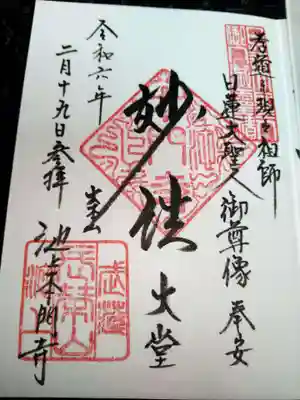 孝道 現 祖師
日蓮大聖人御尊像 奉安
妙法 大堂
令和六年
二月十九日参拝
池上本門寺